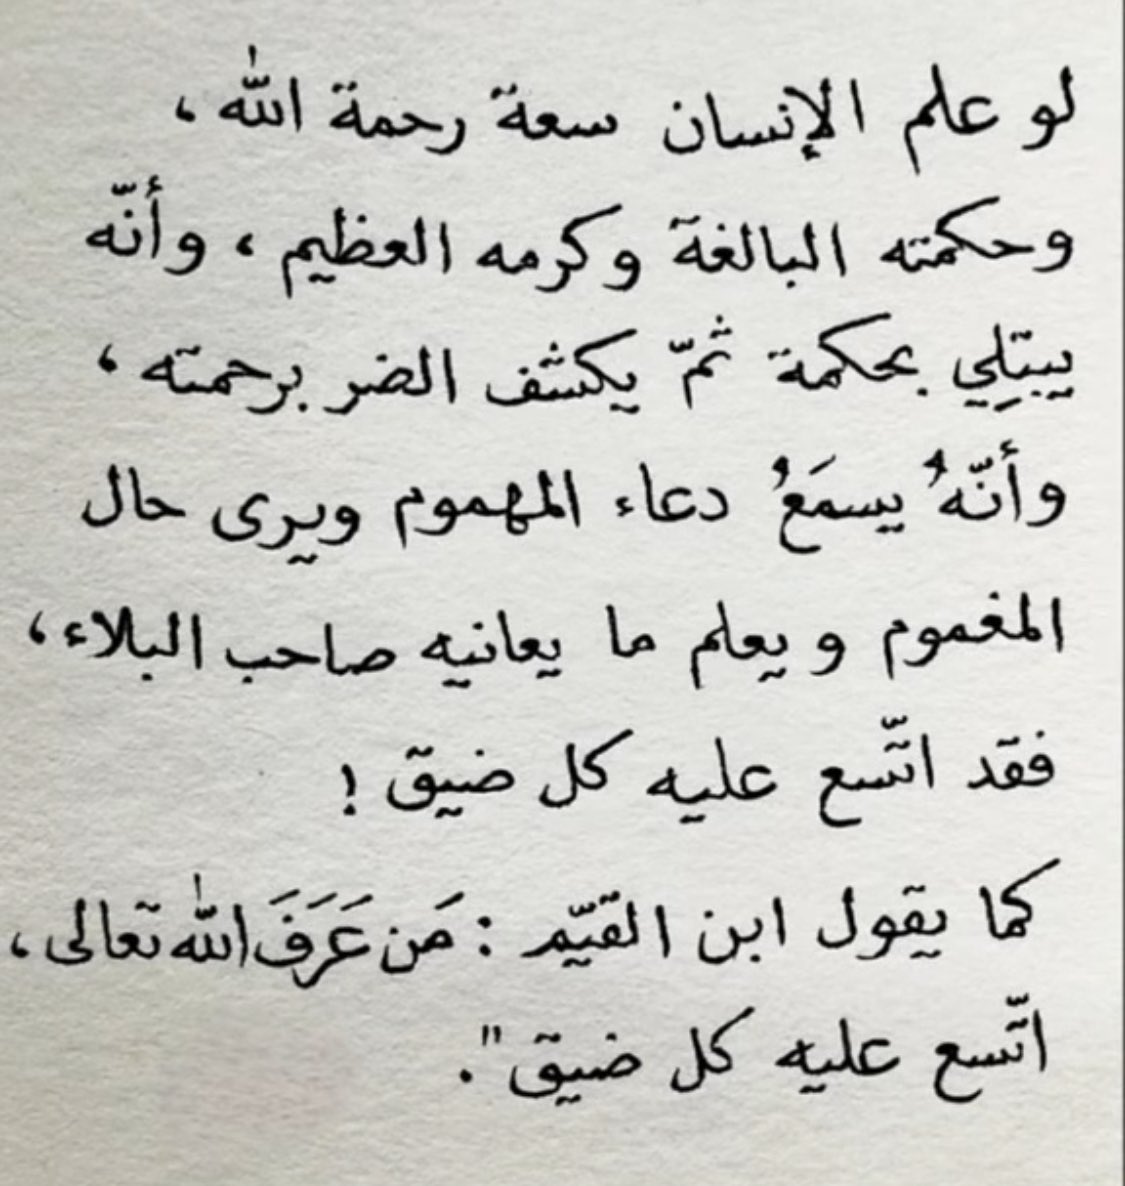 لو علم الإنسان سعة رحمة الله ،
وحكمته البالغة وكرمه العظيم ، وأنّه
يبتلِي بحكمة ثمّ يكشف الضر برحمته ،
وأنّهُ يسمَعُ دعاء المهموم ويرى حال
المغموم و يعلم ما يعانيه صاحب البلاء ،
فقد اتّسع عليه كل ضيق !
كما يقول ابن القيّم : مَن عَرَفَ الله تعالى ،
اتّسع عليه كل ضيق".